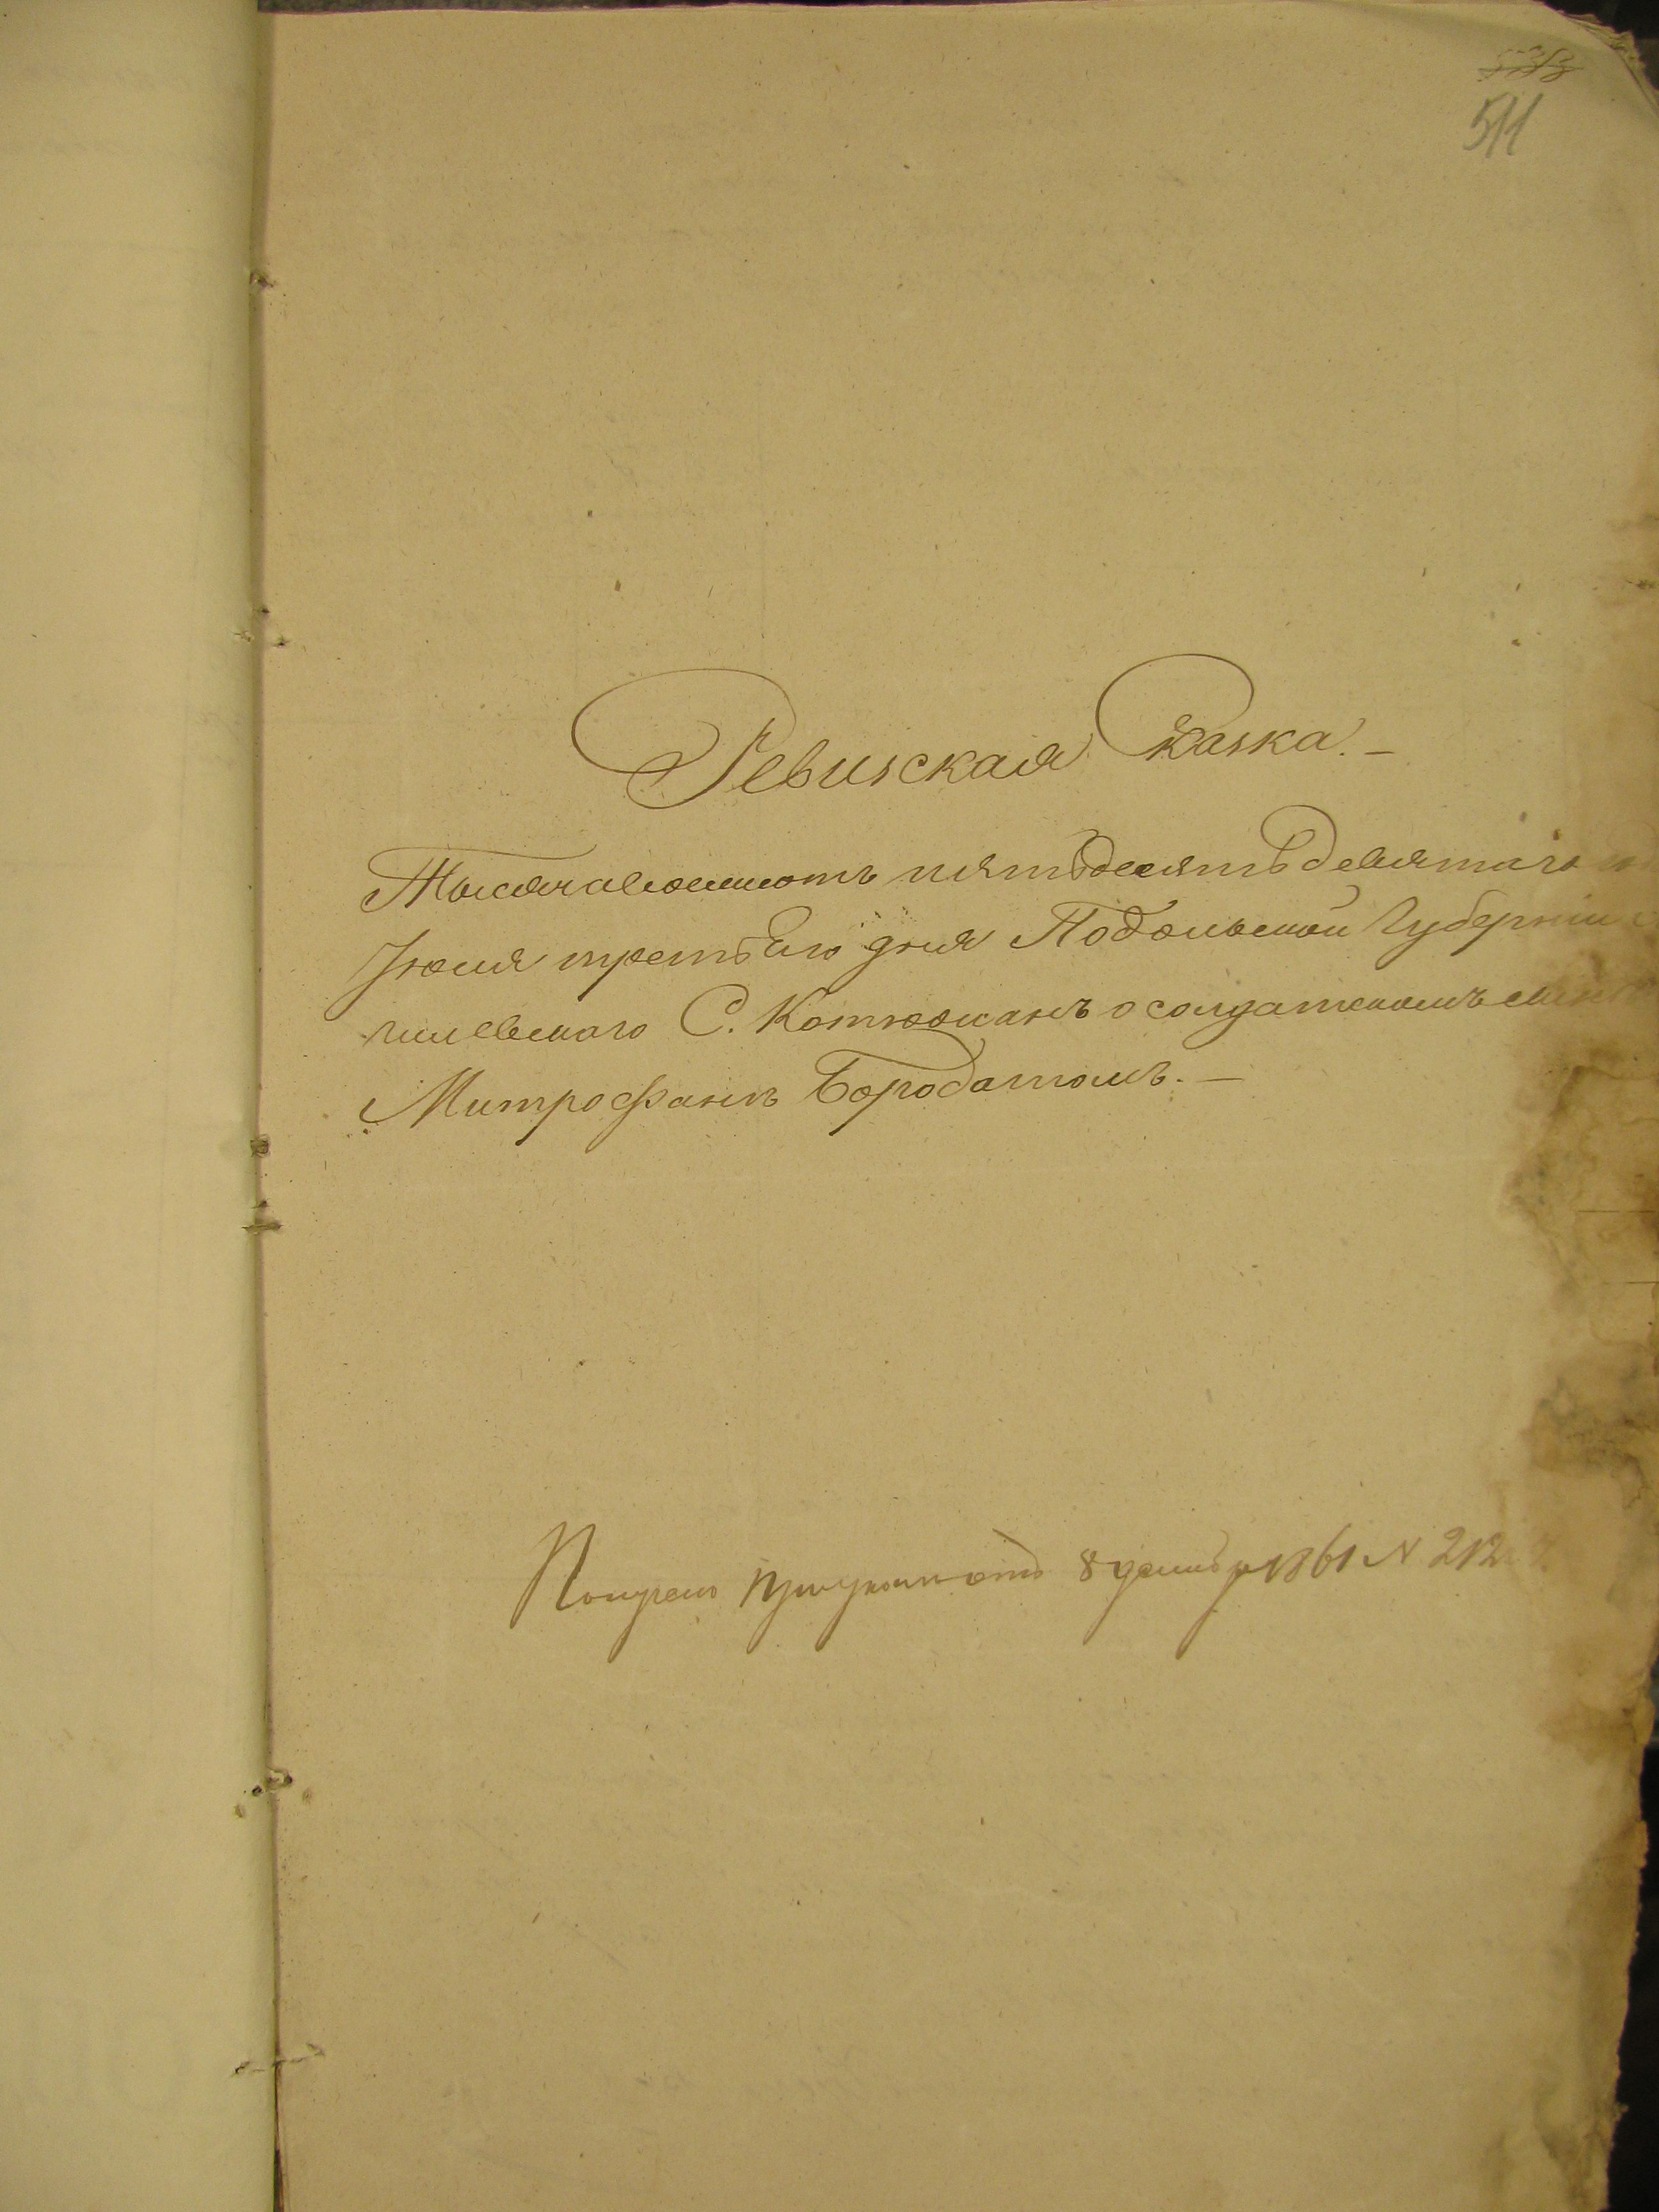 511
Ревизская Сказка. —
Тысяча восемьсотъ пятьдесятъ девятаго
Іюля третьяго дня Подольской Губерніи
гилевскаго С. Котюжанъ о солдатскомъ сынѣ
Митрофанѣ Бородатомъ. —
8 декабря 1861 N 212